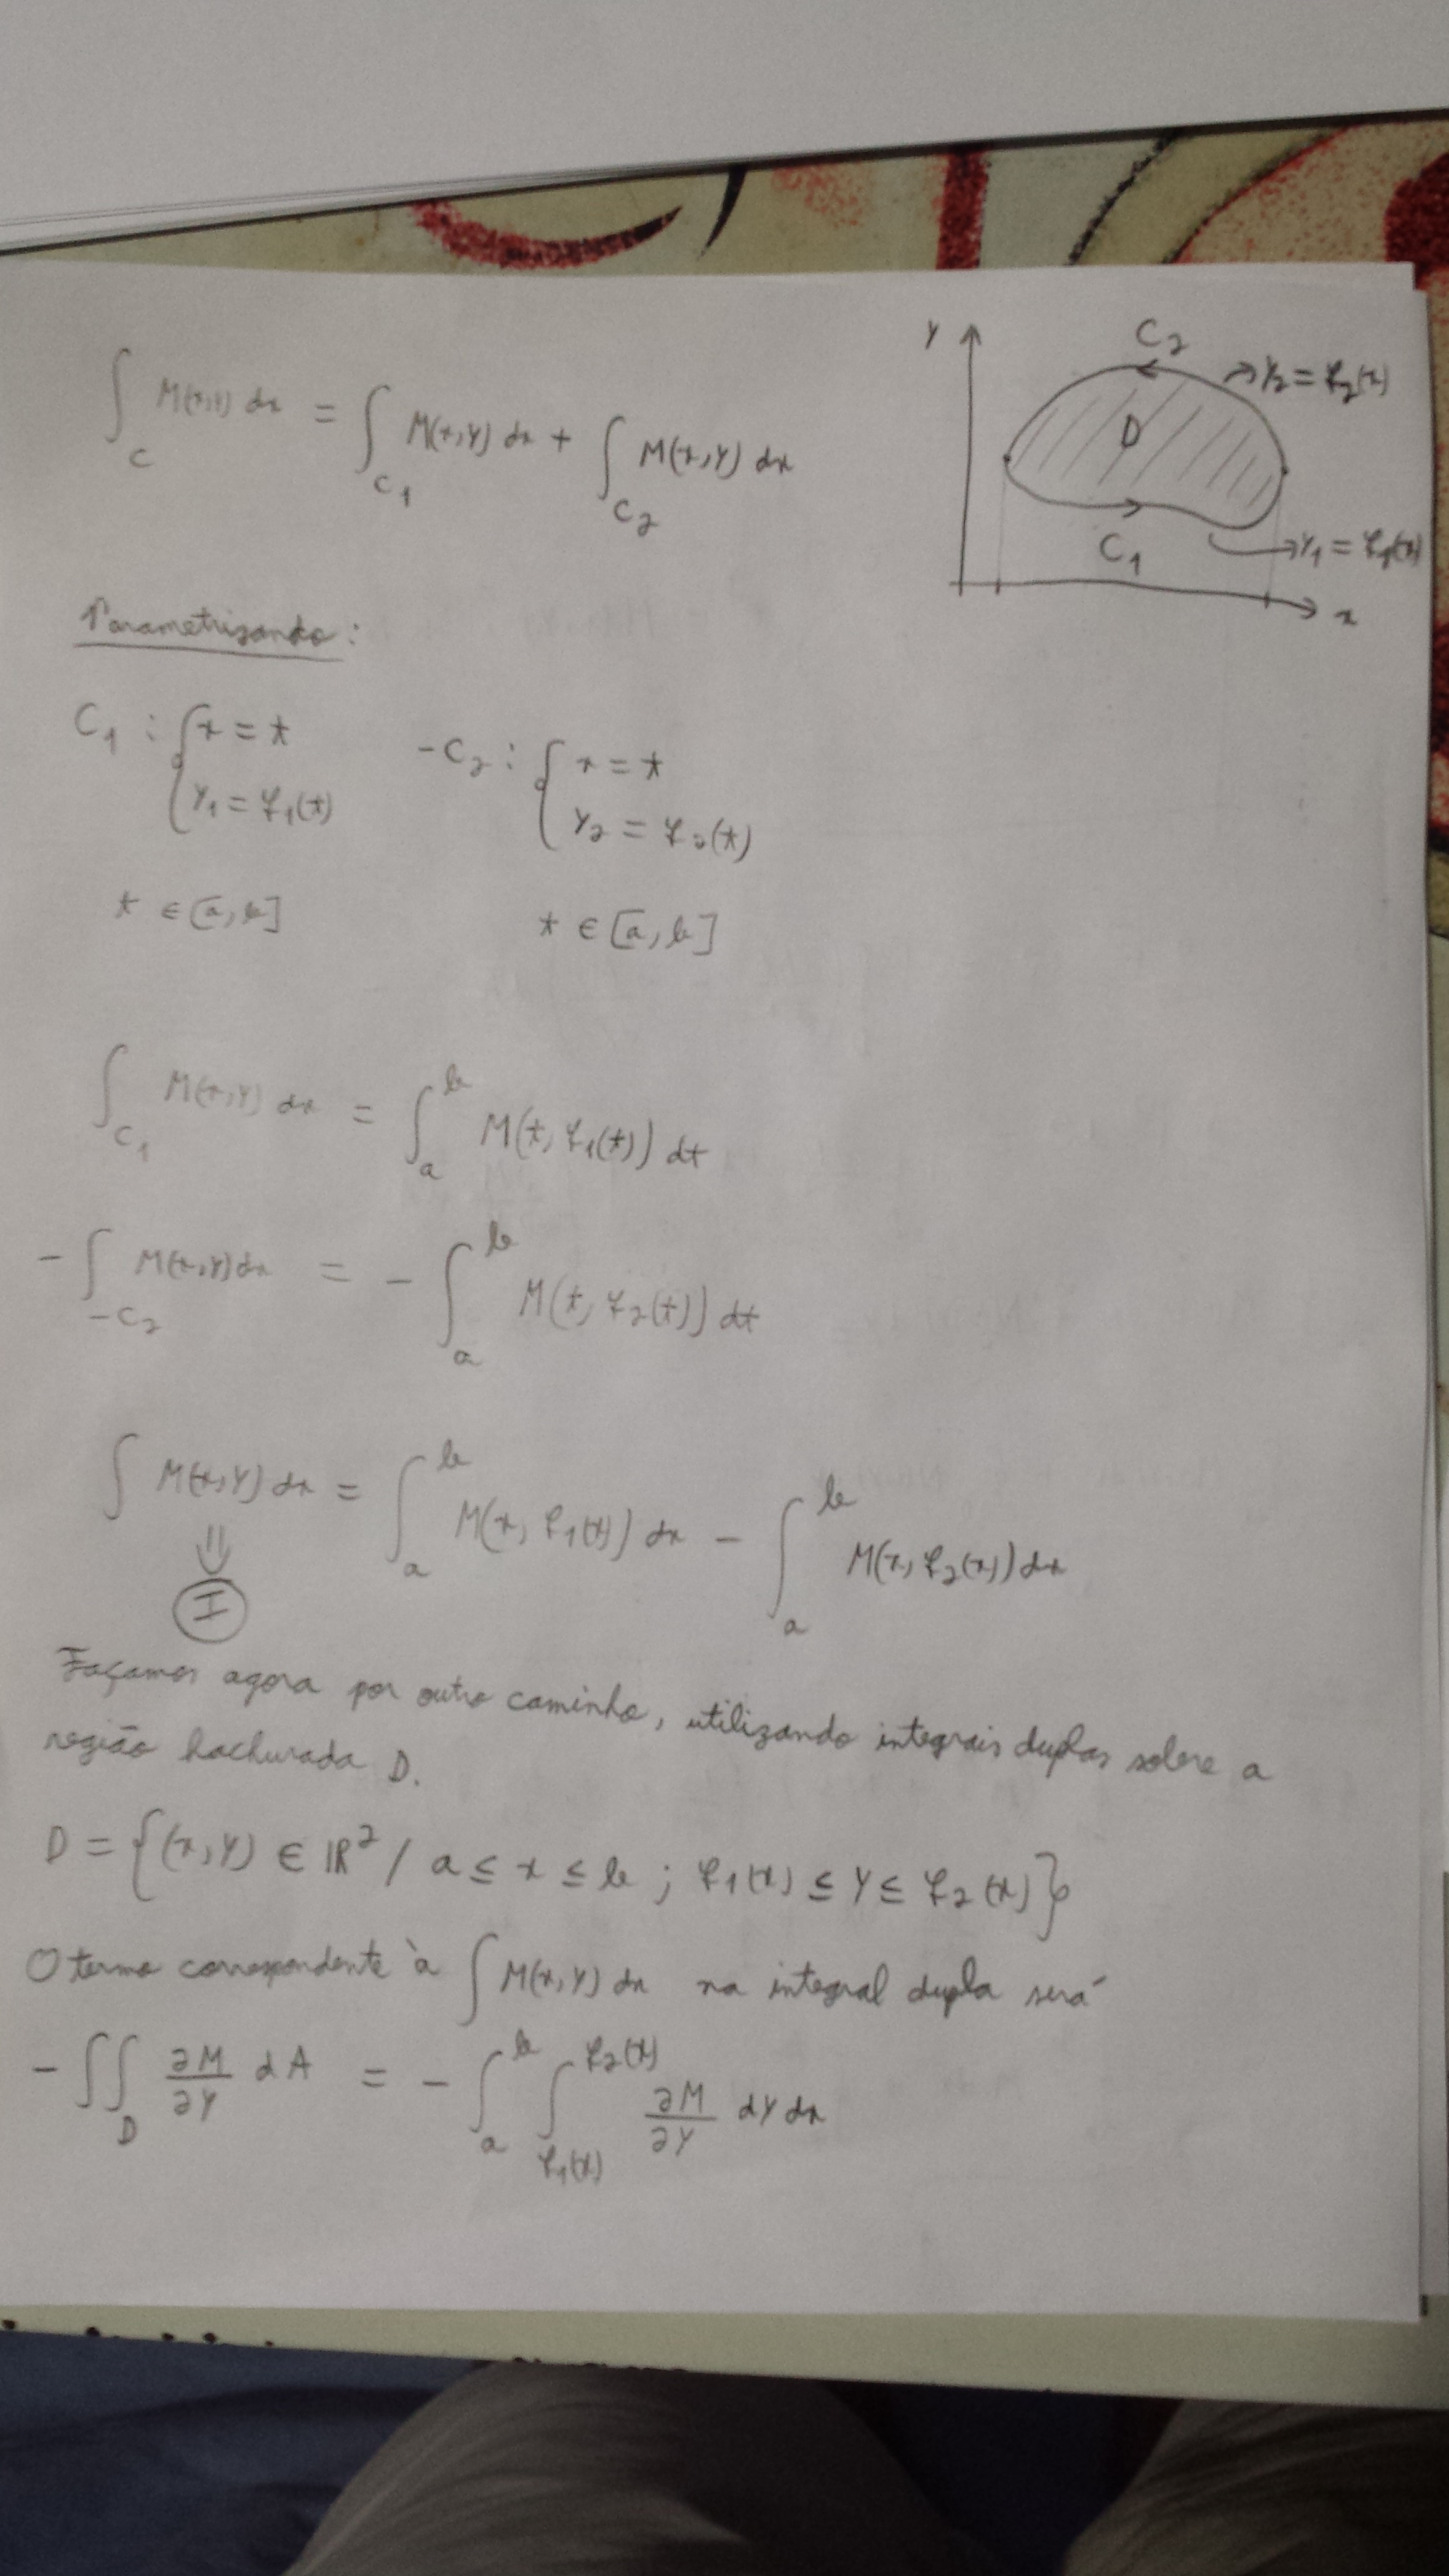 ∫_C M(x,y) dx = ∫_{C₁} M(x,y) dx + ∫_{C₂} M(x,y) dx
y
C₂
y₂ = f₂(x)
D
C₁
y₁ = f₁(x)
x
Parametrizando:
C₁ : { x = t
y₁ = f₁(t)
-C₂ : { x = t
y₂ = f₂(t)
t ∈ [a, b]
t ∈ [a, b]
∫_{C₁} M(x,y) dx = ∫_a^b M(t, f₁(t)) dt
- ∫_{-C₂} M(x,y) dx = - ∫_a^b M(t, f₂(t)) dt
∫ M(x,y) dx = ∫_a^b M(x, f₁(x)) dx - ∫_a^b M(x, f₂(x)) dx
⇓
I
Façamos agora por outro caminho, utilizando integrais duplas sobre a
região hachurada D.
D = {(x,y) ∈ ℝ² / a ≤ x ≤ b ; f₁(x) ≤ y ≤ f₂(x)}
O termo correspondente à ∫ M(x,y) dx na integral dupla será
- ∬_D ∂M/∂y dA = - ∫_a^b ∫_{f₁(x)}^{f₂(x)} ∂M/∂y dy dx